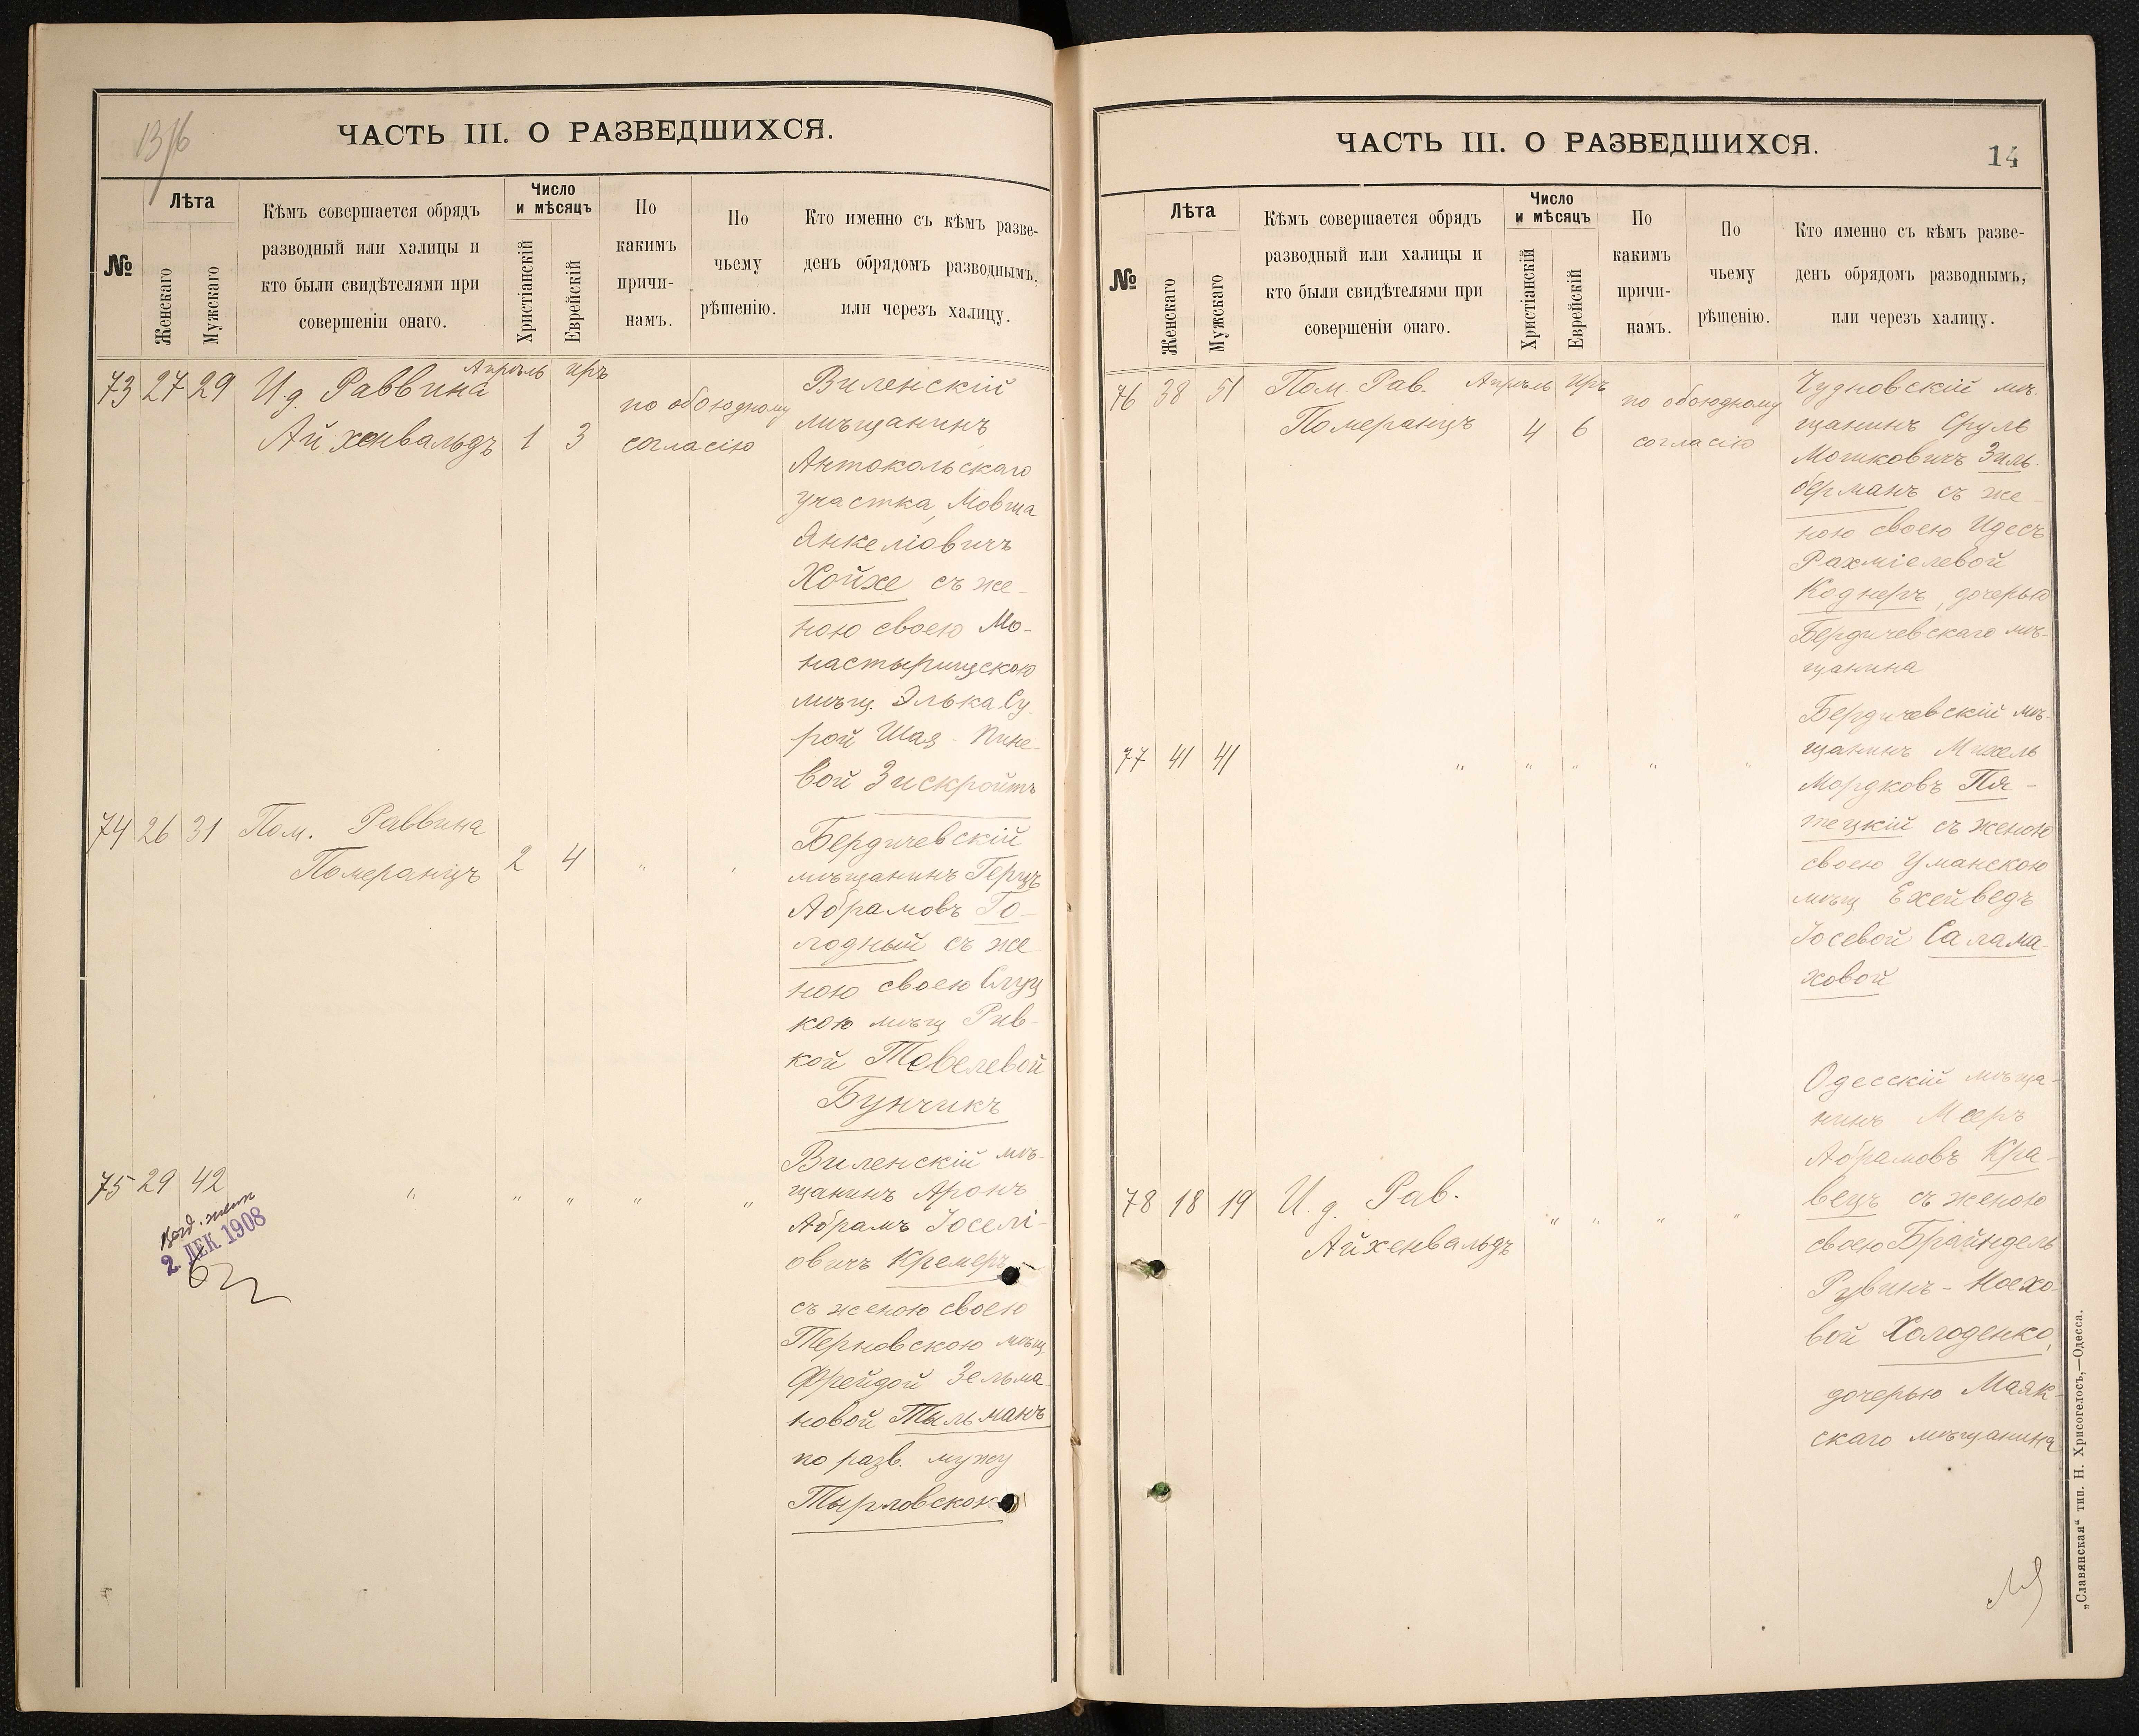 13/16
ЧАСТЬ III. О РАЗВЕДШИХСЯ.
№
Лѣта
Женскаго
Мужскаго
Кѣмъ совершается обрядъ
разводный или халицы и
кто были свидѣтелями при
совершеніи онаго.
Число
и мѣсяцъ
Христіанскій
Еврейскій
По
какимъ
причи-
намъ.
По
чьему
рѣшенію.
Кто именно съ кѣмъ разве-
денъ обрядомъ разводнымъ,
или черезъ халицу.
73 27 29 И.д. Раввина Апрѣль иръ
Айхенвальдъ 1 3 по обоюдному
согласію
Виленскій
мѣщанинъ
Антокольскаго
участка, Мовша
Янкеліовичъ
Хойхе съ же-
ною своею Мо-
настырищскою
мѣщ. Элька-Су-
рой Шая-Пине-
вой Зискройтъ
74 26 31 Пом. Раввина
Померанцъ 2 4 " "
Бердичевскій
мѣщанинъ Герцъ
Абрамовъ Го-
лодный съ же-
ною своею Слуц
кою мѣщ Рив-
кой Товелевой
Бунчикъ
75 29 42 " " " " "
2 ДЕК 1908
Виленскій мѣ-
щанинъ Аронъ
Абрамъ Іоселі-
овичъ Кремеръ
съ женою своею
Терновскою мѣщ
Фрейдой Зельма-
новой Тыльманъ
по разв. мужу
Тырловскою
ЧАСТЬ III. О РАЗВЕДШИХСЯ.
14
№
Лѣта
Женскаго
Мужскаго
Кѣмъ совершается обрядъ
разводный или халицы и
кто были свидѣтелями при
совершеніи онаго.
Число
и мѣсяцъ
Христіанскій
Еврейскій
По
какимъ
причи-
намъ.
По
чьему
рѣшенію.
Кто именно съ кѣмъ разве-
денъ обрядомъ разводнымъ,
или черезъ халицу.
76 38 51 Пом. Рав. Апрѣль Иръ
Померанцъ 4 6 по обоюдному
согласію
Чудновскій мѣ-
щанинъ Сруль
Мошковичъ Зиль-
берманъ съ же-
ною своею Идесъ
Рахміелевой
Коднеръ, дочерью
Бердичевскаго мѣ-
щанина
77 41 41 " " " " "
Бердичевскій мѣ-
щанинъ Михель
Мордковъ Пя-
тецкій съ женою
своею Уманскою
мѣщ Ехейведъ
Іосевой Салама-
ховой
78 18 19 И.д. Рав.
Айхенвальдъ " " " "
Одесскій мѣща-
нинъ Мееръ
Абрамовъ Кра-
вецъ съ женою
своею Брайндель
Рувинъ-Ноехо-
вой Холоденко,
дочерью Маяк-
скаго мѣщанина
„Славянская“ тип. Н. Хрисогелосъ,—Одесса.